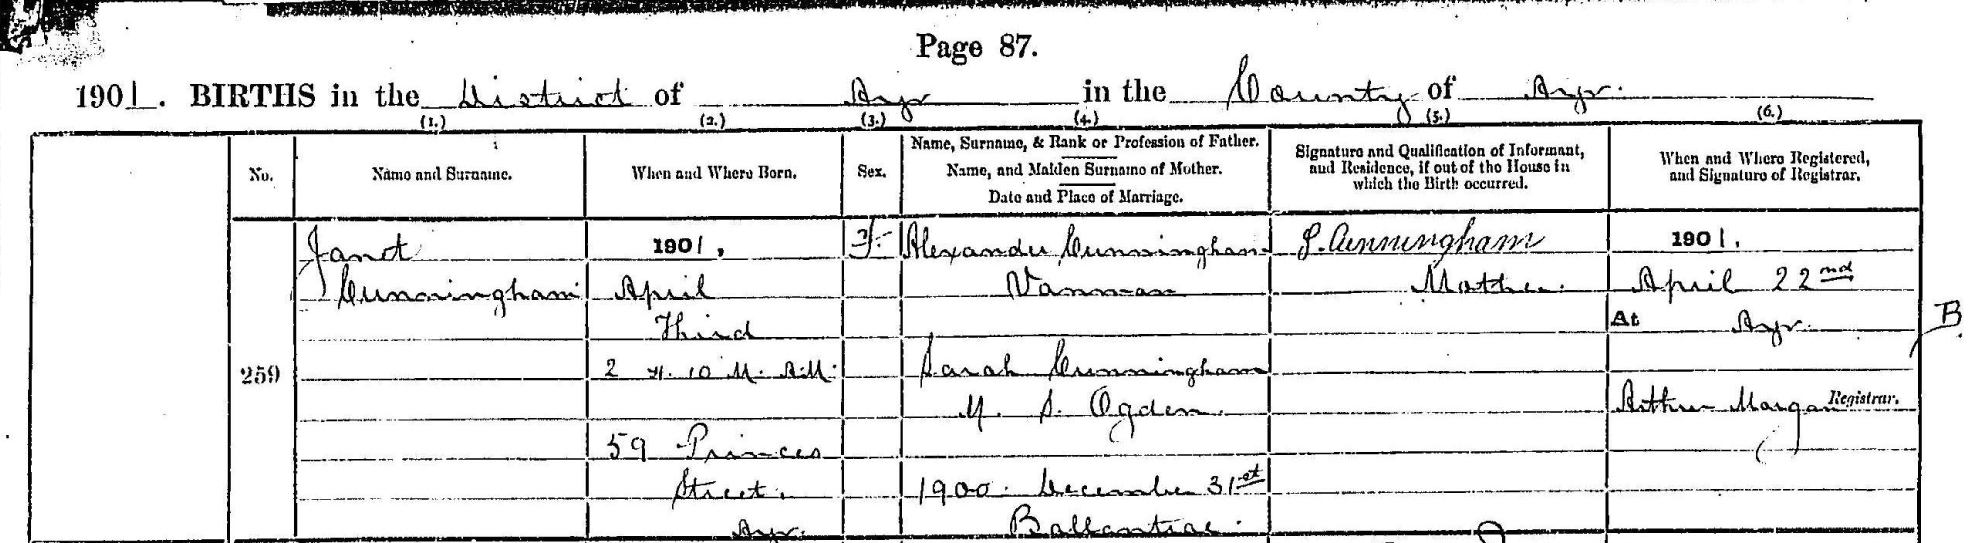 Page 87.
1901. BIRTHS in the District of Ayr in the County of Ayr.
(1.) (2.) (3.) (4.) (5.) (6.)
No.
Name and Surname.
When and Where Born.
Sex.
Name, Surname, & Rank or Profession of Father.
Name, and Maiden Surname of Mother.
Date and Place of Marriage.
Signature and Qualification of Informant,
and Residence, if out of the House in
which the Birth occurred.
When and Where Registered,
and Signature of Registrar.
259
Janet
Cunningham
1901,
April
Third
2 H. 10 M. A.M.
59 Princes
Street.
Ayr.
F.
Alexander Cunningham
Vanman
Sarah Cunningham
M. S. Ogden.
1900. December 31st
Ballantrae.
S. Cunningham
Mother.
1901.
April 22nd
At Ayr.
Arthur Morgan Registrar.
B.